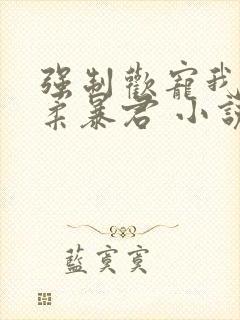 強制歡寵我
柔暴君 小說
藍寞寞